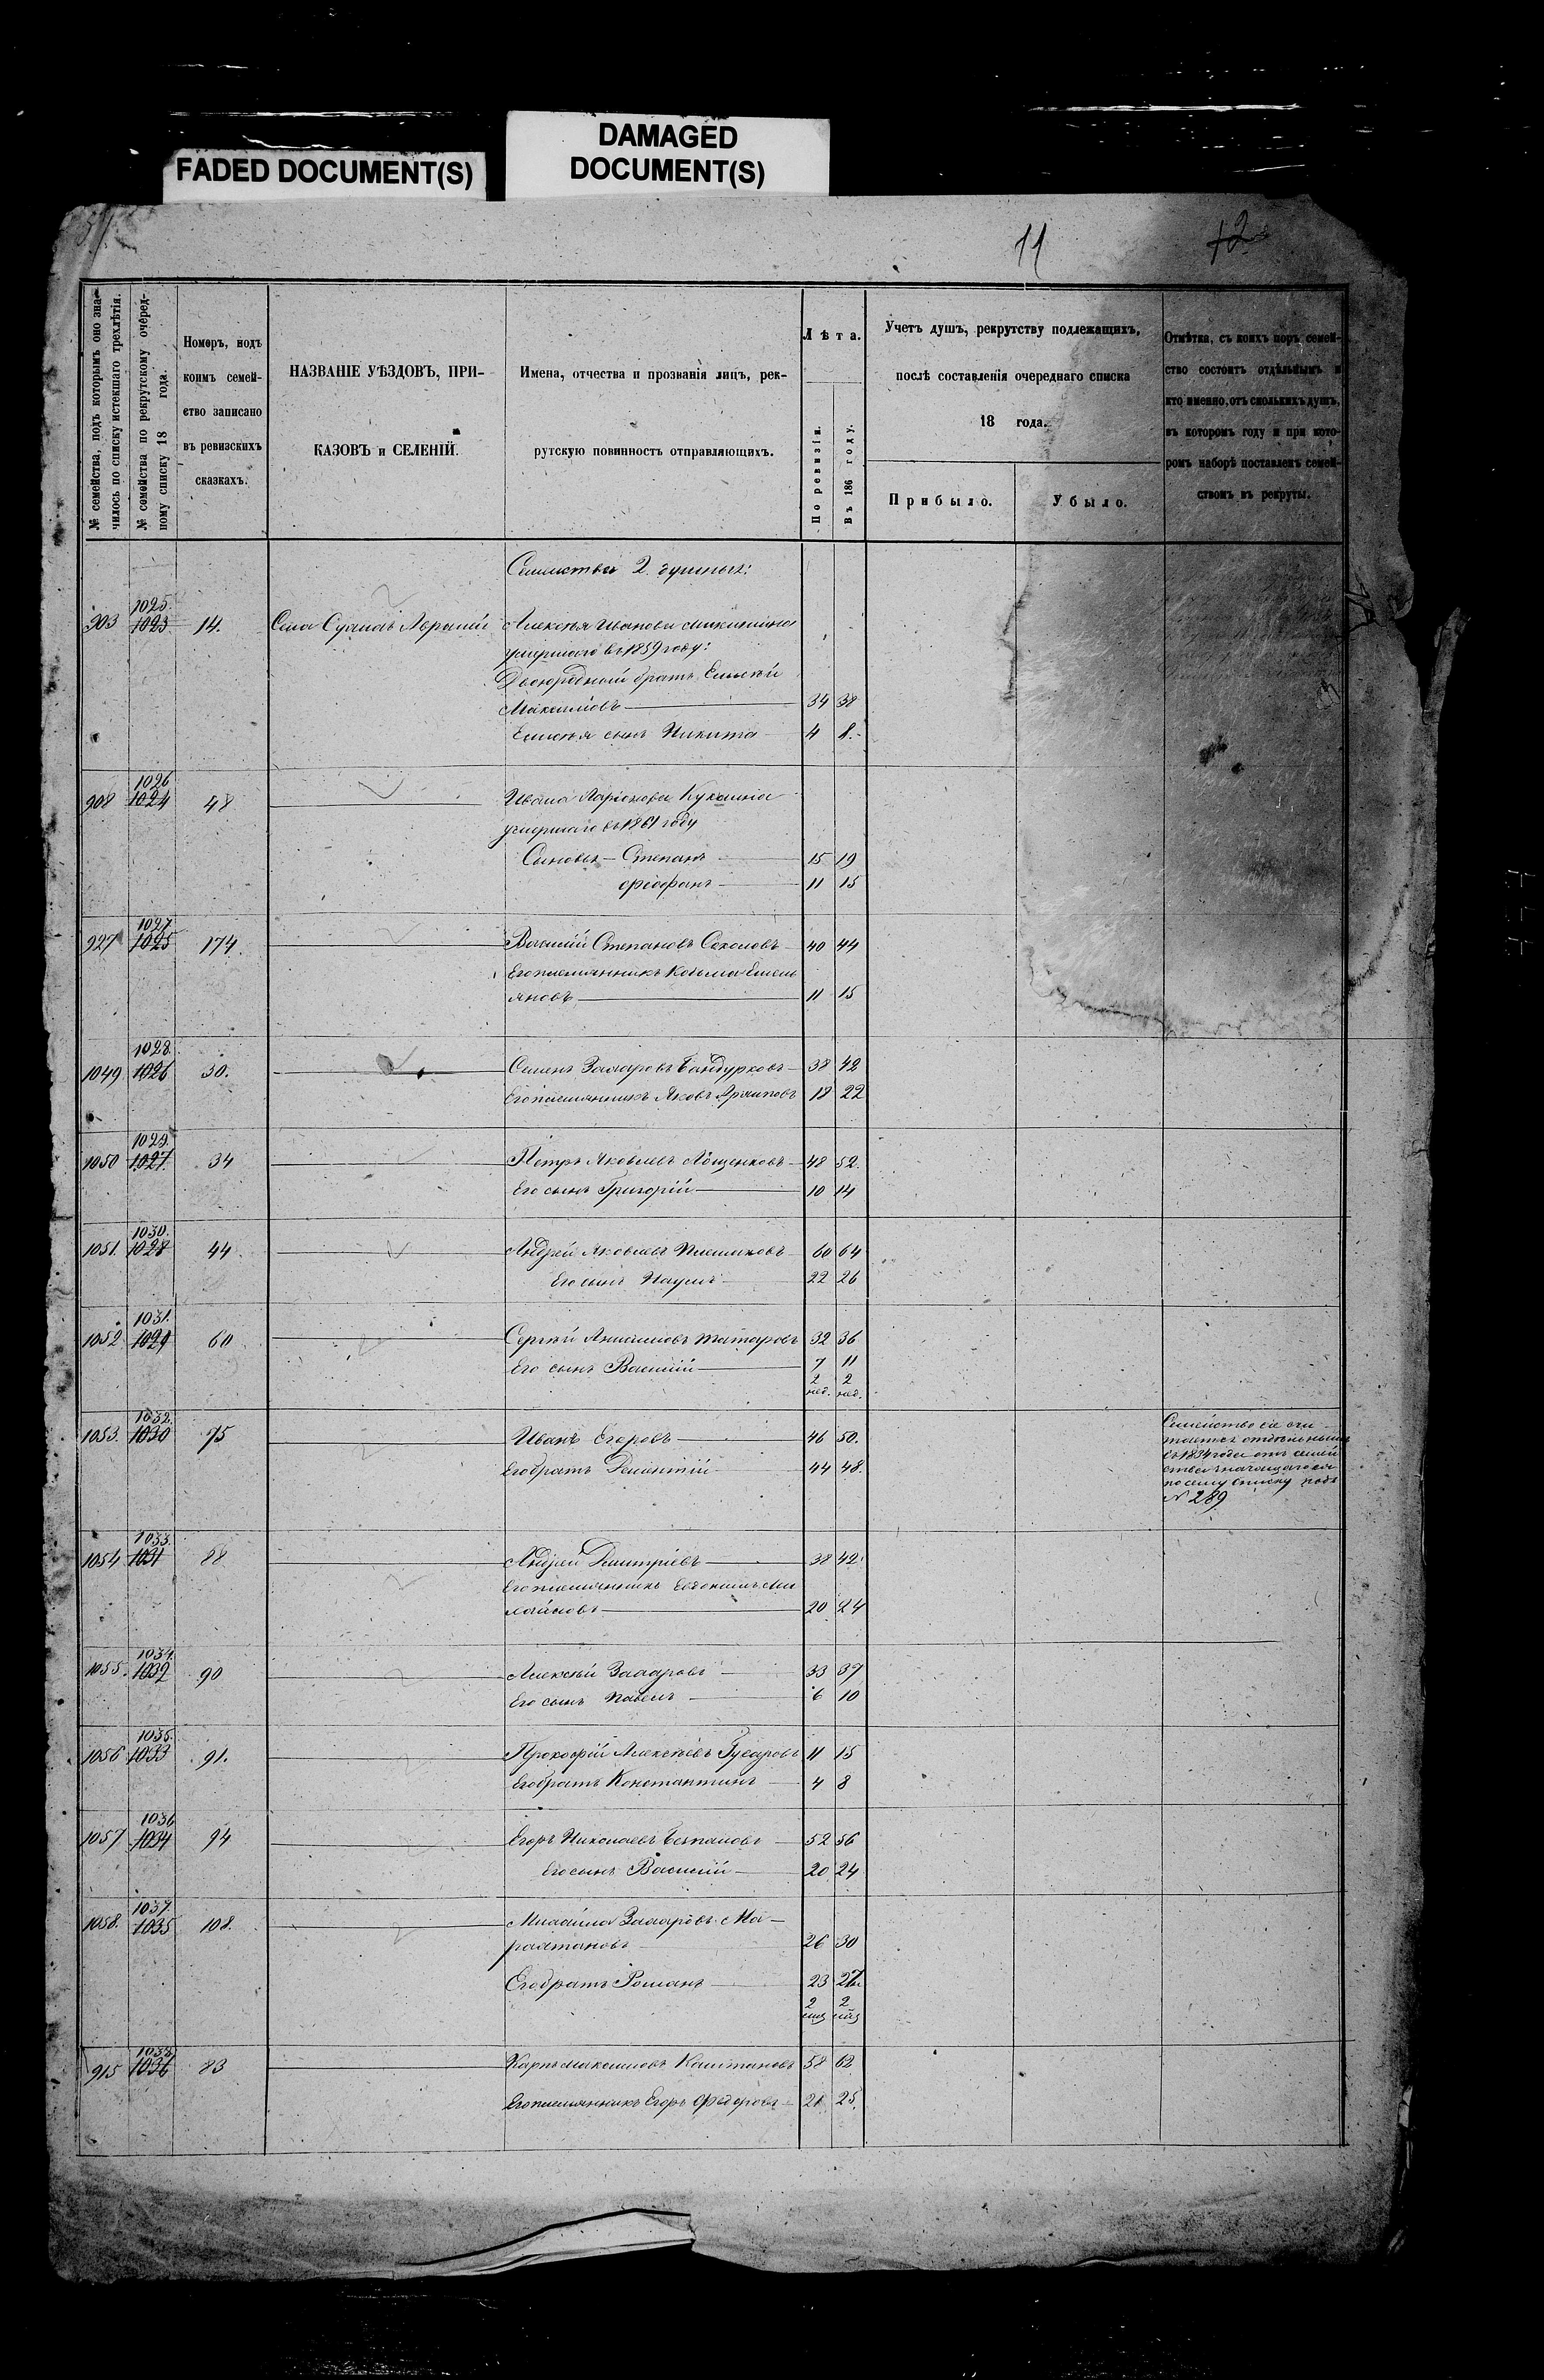 FADED DOCUMENT(S)
DAMAGED
DOCUMENT(S)
11
12
№ семейства, подъ которымъ оно зна-
чилось по списку истекшаго трехлѣтія.
№ семейства по рекрутскому очеред-
ному списку 18 года.
Номеръ, подъ
коимъ семей-
ство записано
въ ревизскихъ
сказкахъ.
НАЗВАНІЕ УѢЗДОВЪ, ПРИ-
КАЗОВЪ и СЕЛЕНІЙ.
Имена, отчества и прозванія лицъ, рек-
рутскую повинность отправляющихъ.
Лѣта.
По ревизіи.
Въ 186 году.
Учетъ душъ, рекрутству подлежащихъ,
послѣ составленія очереднаго списка
18 года.
Прибыло.
Убыло.
Отмѣтка, съ коихъ поръ семей-
ство состоитъ отдѣльнымъ и
кто именно, отъ сколькихъ душъ,
въ которомъ году и при кото-
ромъ наборѣ поставленъ семей-
ствомъ въ рекруты.
Семейства 2 душныя:
1025.
903 1023 14. Села
Алексѣя Иванова
умершаго въ 1859 году:
Двоюродный братъ Елисѣй
Максимовъ 34 38
Елисѣя сынъ Никита 4 8.
1026
908 1024 48 Ивана Ларіонова
умершаго въ 1861 году
Сыновья – Степанъ 15 19
Ѳеофанъ 11 15
1027
927 1025 174. Василій Степановъ Соколовъ 40 44
Его племянникъ Козьма Емель
яновъ 11 15
1028.
1049 1026 30. Семенъ Захаровъ Бандурковъ 38 42
Его племянникъ Яковъ Архиповъ 18 22
1029.
1050 1027. 34 Петръ Яковлевъ Лощенковъ 48 52.
Его сынъ Григорій 10 14
1030.
1051. 1028 44 Андрей Яковлевъ Плешковъ 60 64
Его сынъ Наумъ 22 26
1031.
1052 1029 60 Сергѣй Анисимовъ Татаровъ 32 36
Его сынъ Василій 7 11
2 2
нед. нед.
1032.
1053. 1030 75 Иванъ Егоровъ 46 50.
Его братъ Дементій 44 48.
Семейство сіе счи
тается отдѣльнымъ
съ 1834 года отъ семей
ства значащагося
по сему списку подъ
№ 289
1033.
1054 1031 88 Андрей Дмитріевъ 38 42.
Его племянникъ Евдокимъ Ми
хайловъ 20 24
1034.
1055. 1032 90 Алексѣй Захаровъ 33 37
Его сынъ Павелъ 6 10
1035.
1056 1033 91. Прокофій Алексѣевъ Гусаровъ 11 15
Его братъ Константинъ 4 8
1036
1057 1034 94 Егоръ Николаевъ Безпаловъ 52 56
Его сынъ Василій 20 24
1037.
1058. 1035 108. Михайла Захаровъ Ма–
рахтановъ 26 30
Его братъ Романъ 23 27
2 2
1038.
915 1036 83 Карпъ Максимовъ Каштановъ 58 62
Его племянникъ Егоръ Ѳедоровъ 21 25.